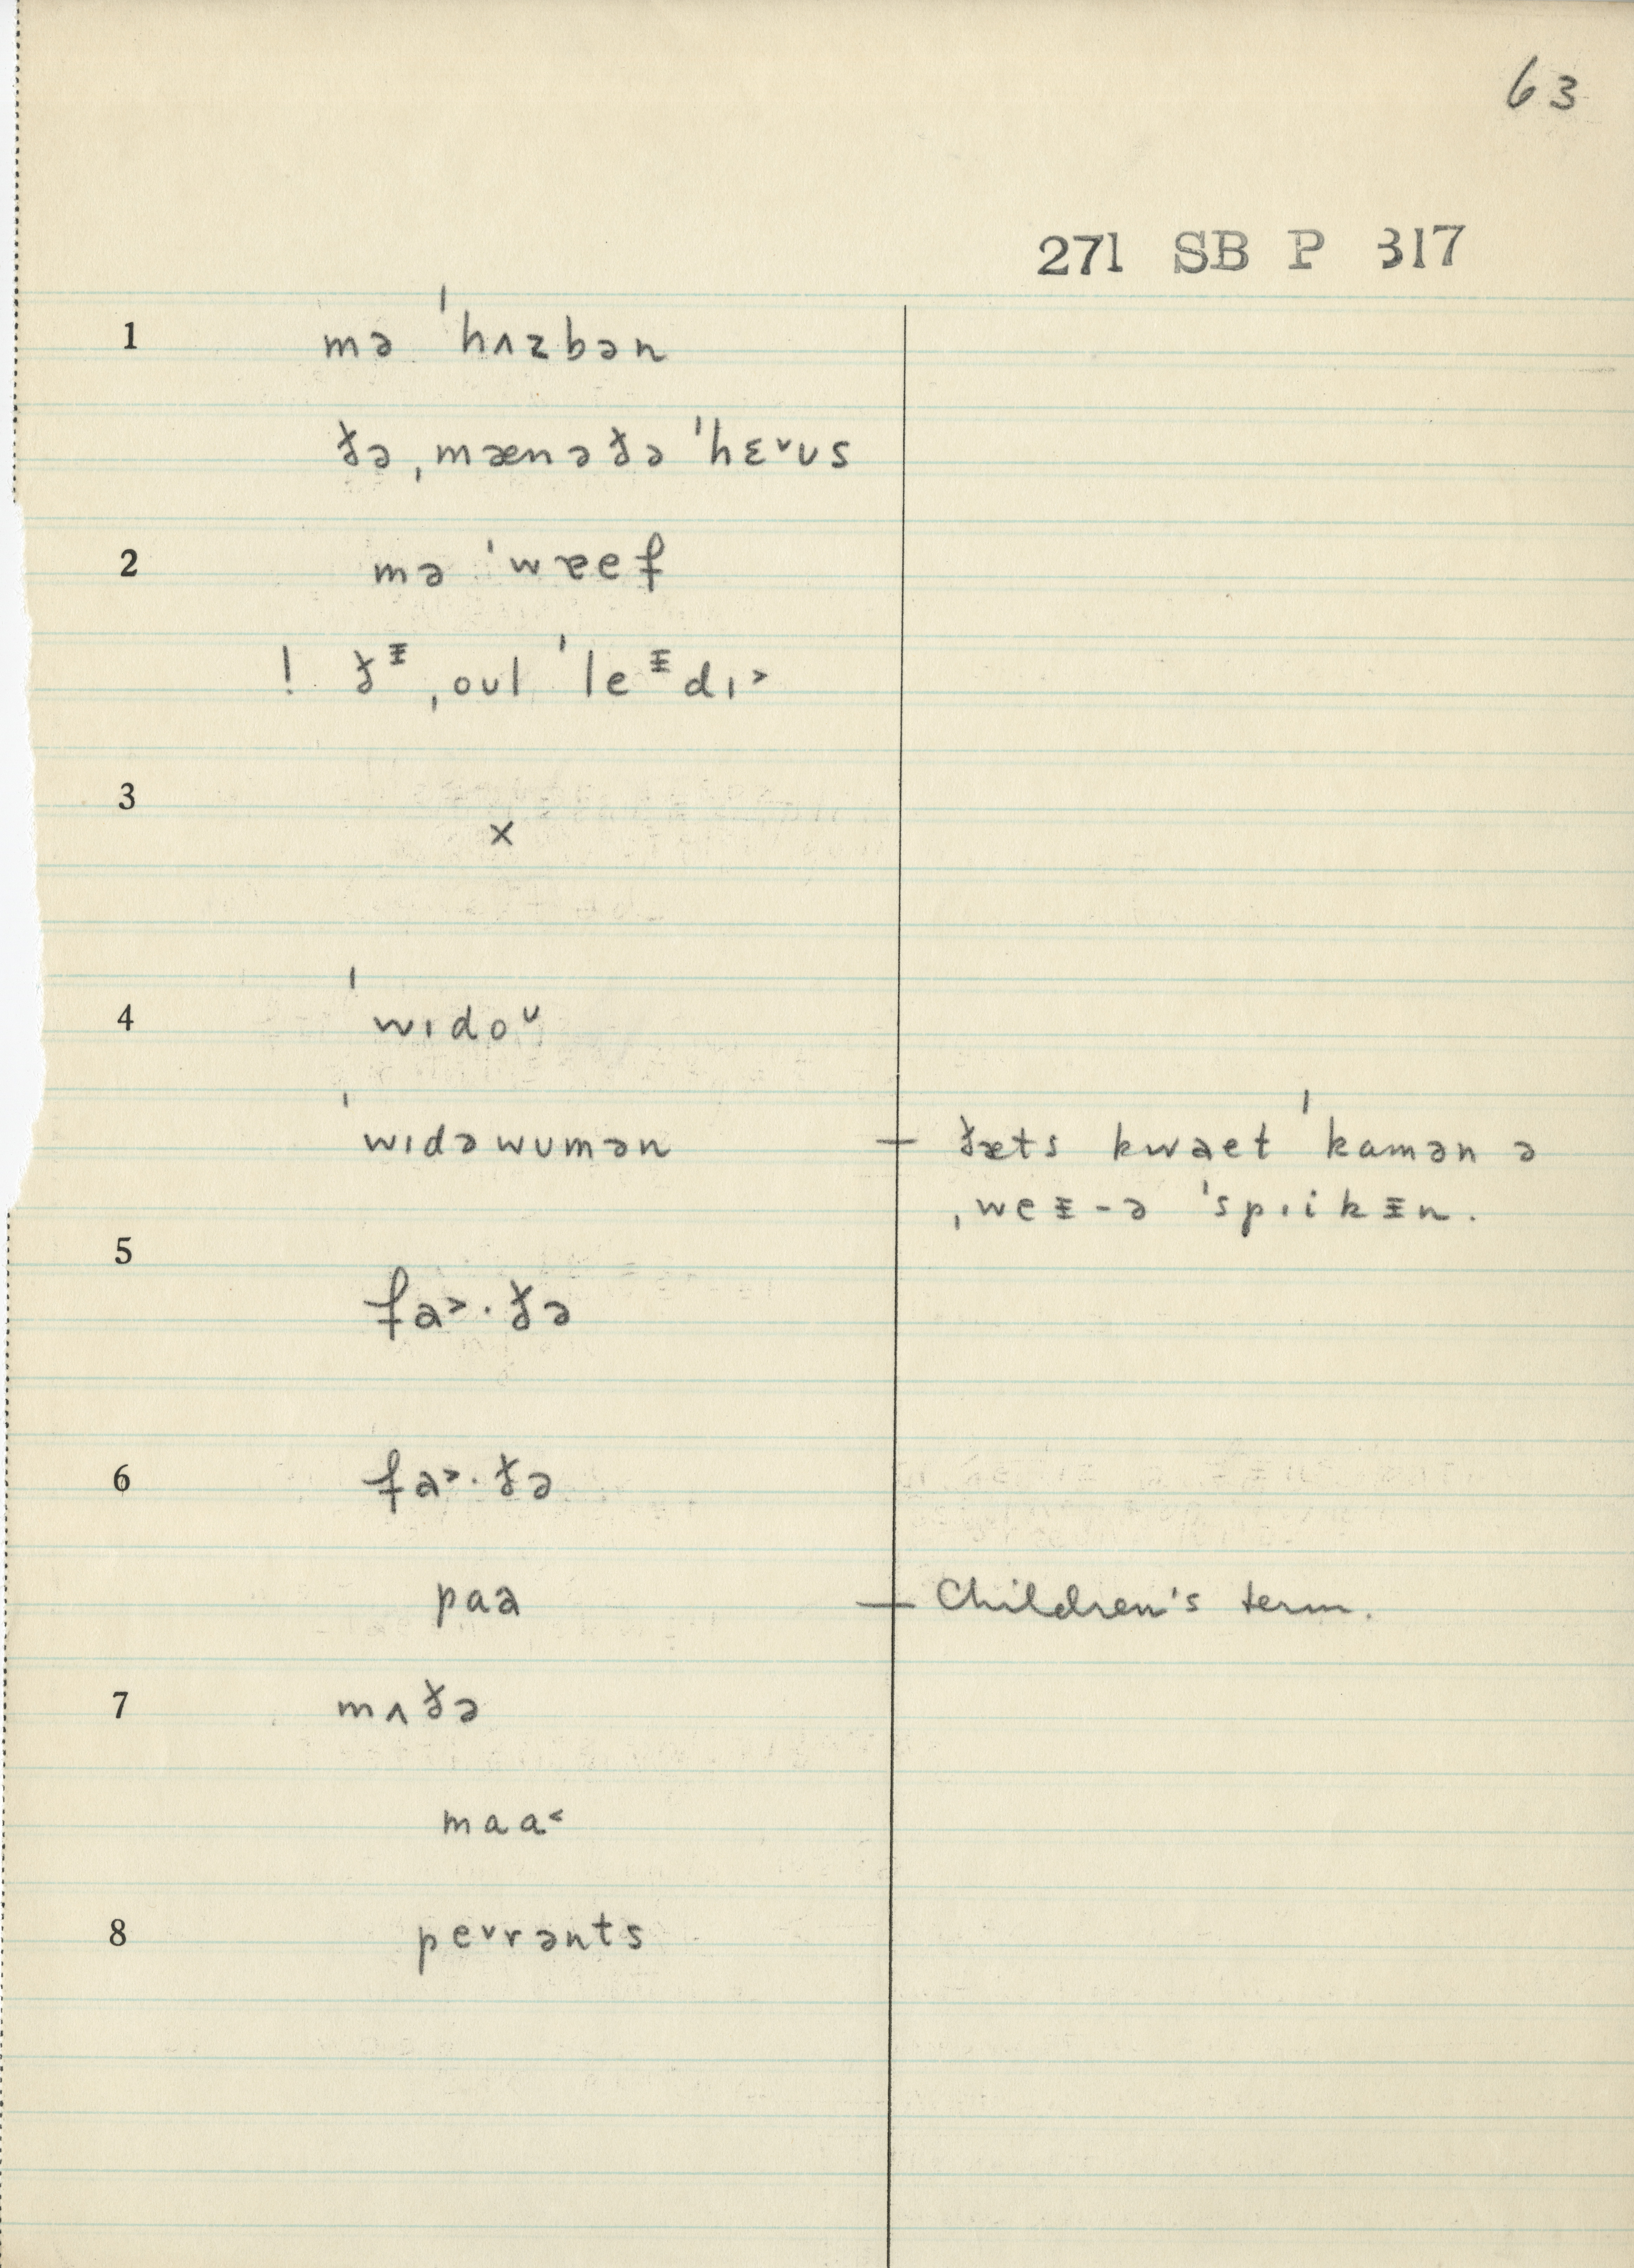 63
271 SB P 317
1 mə ˈhʌzbən
ðə ˌmænəðə ˈhɛ˅ʊs
2 mə ˈwɐef
! ðᵻ ˌoʊl ˈleᵻdɪ˃
3 ×
4 ˈwɪdoᶷ
ˈwɪdəwʊmən — ðæts kwaet ˈkɑmən ə
ˌweᵻ-ə ˈspɪikᵻn.
5 fa˃·ðə
6 fa˃·ðə
pɑa — Children's term.
7 mʌðə
mɑɑ˂
8 pe˅rənts